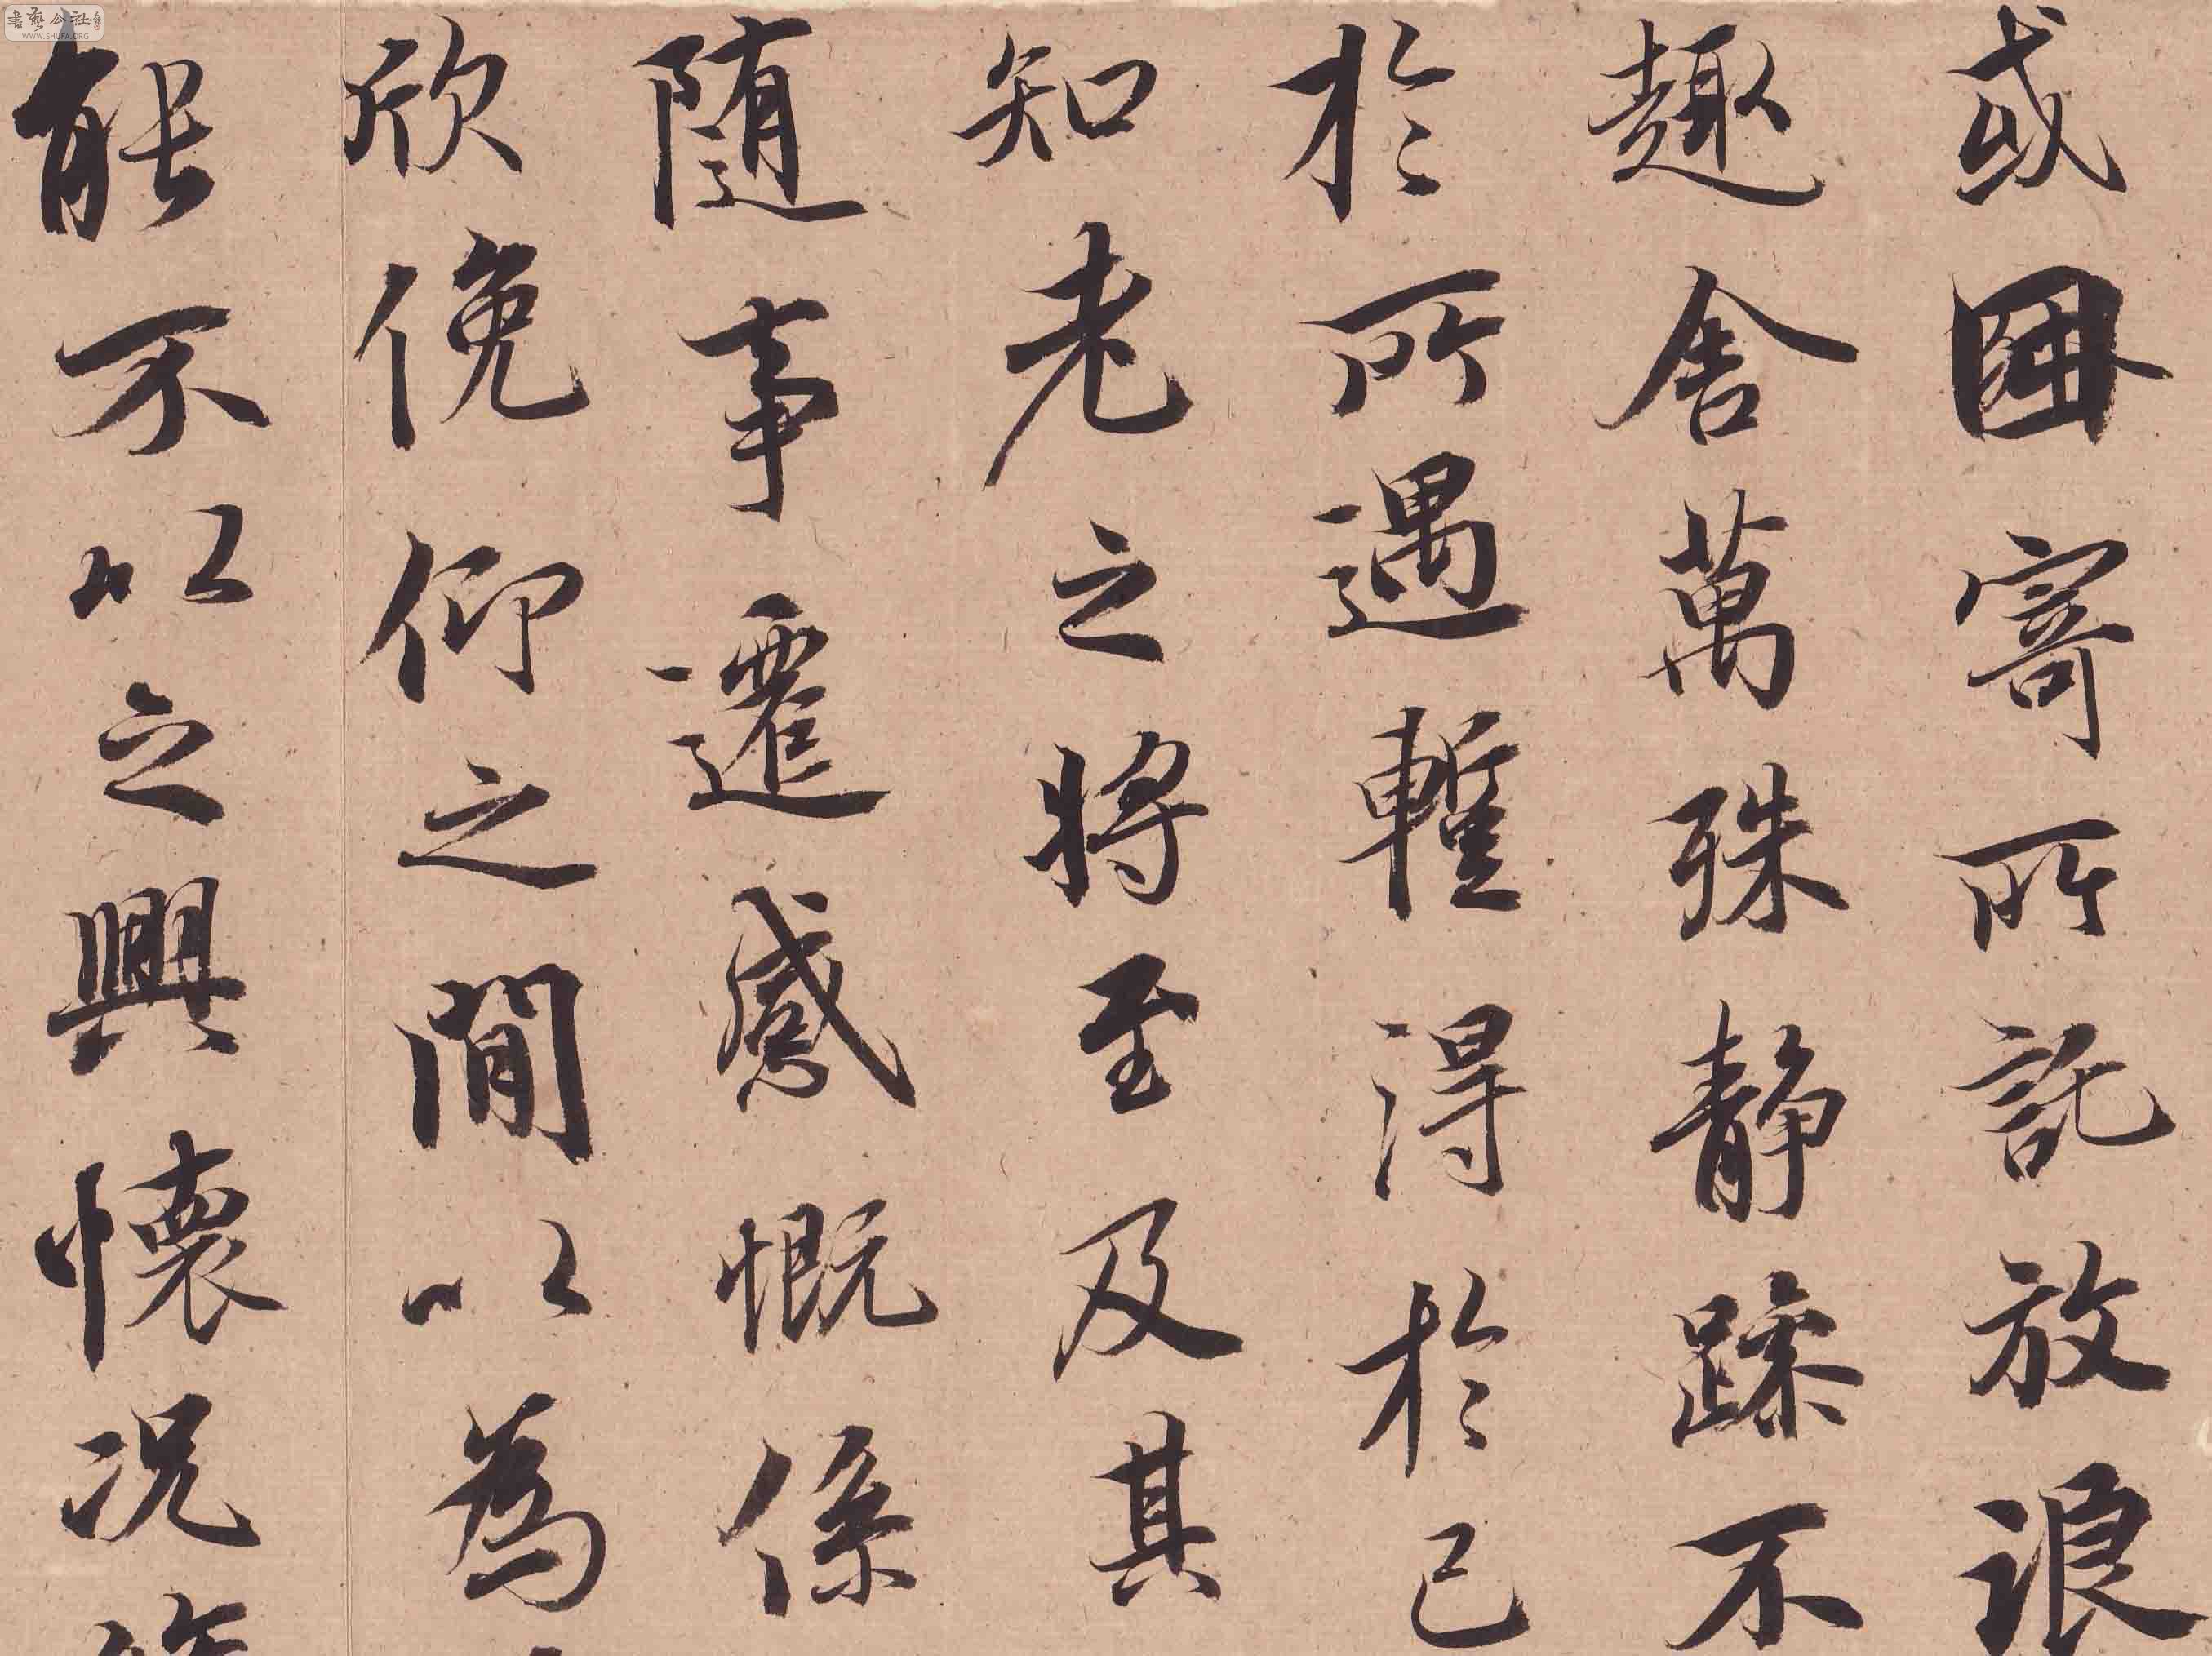 或因寄所託放浪
趣舍萬殊静躁不
於所遇暫得於己
知老之將至及其
随事遷感慨係
欣俛仰之間以為
能不以之興懷況
書藝公社
WWW.SHUFA.ORG